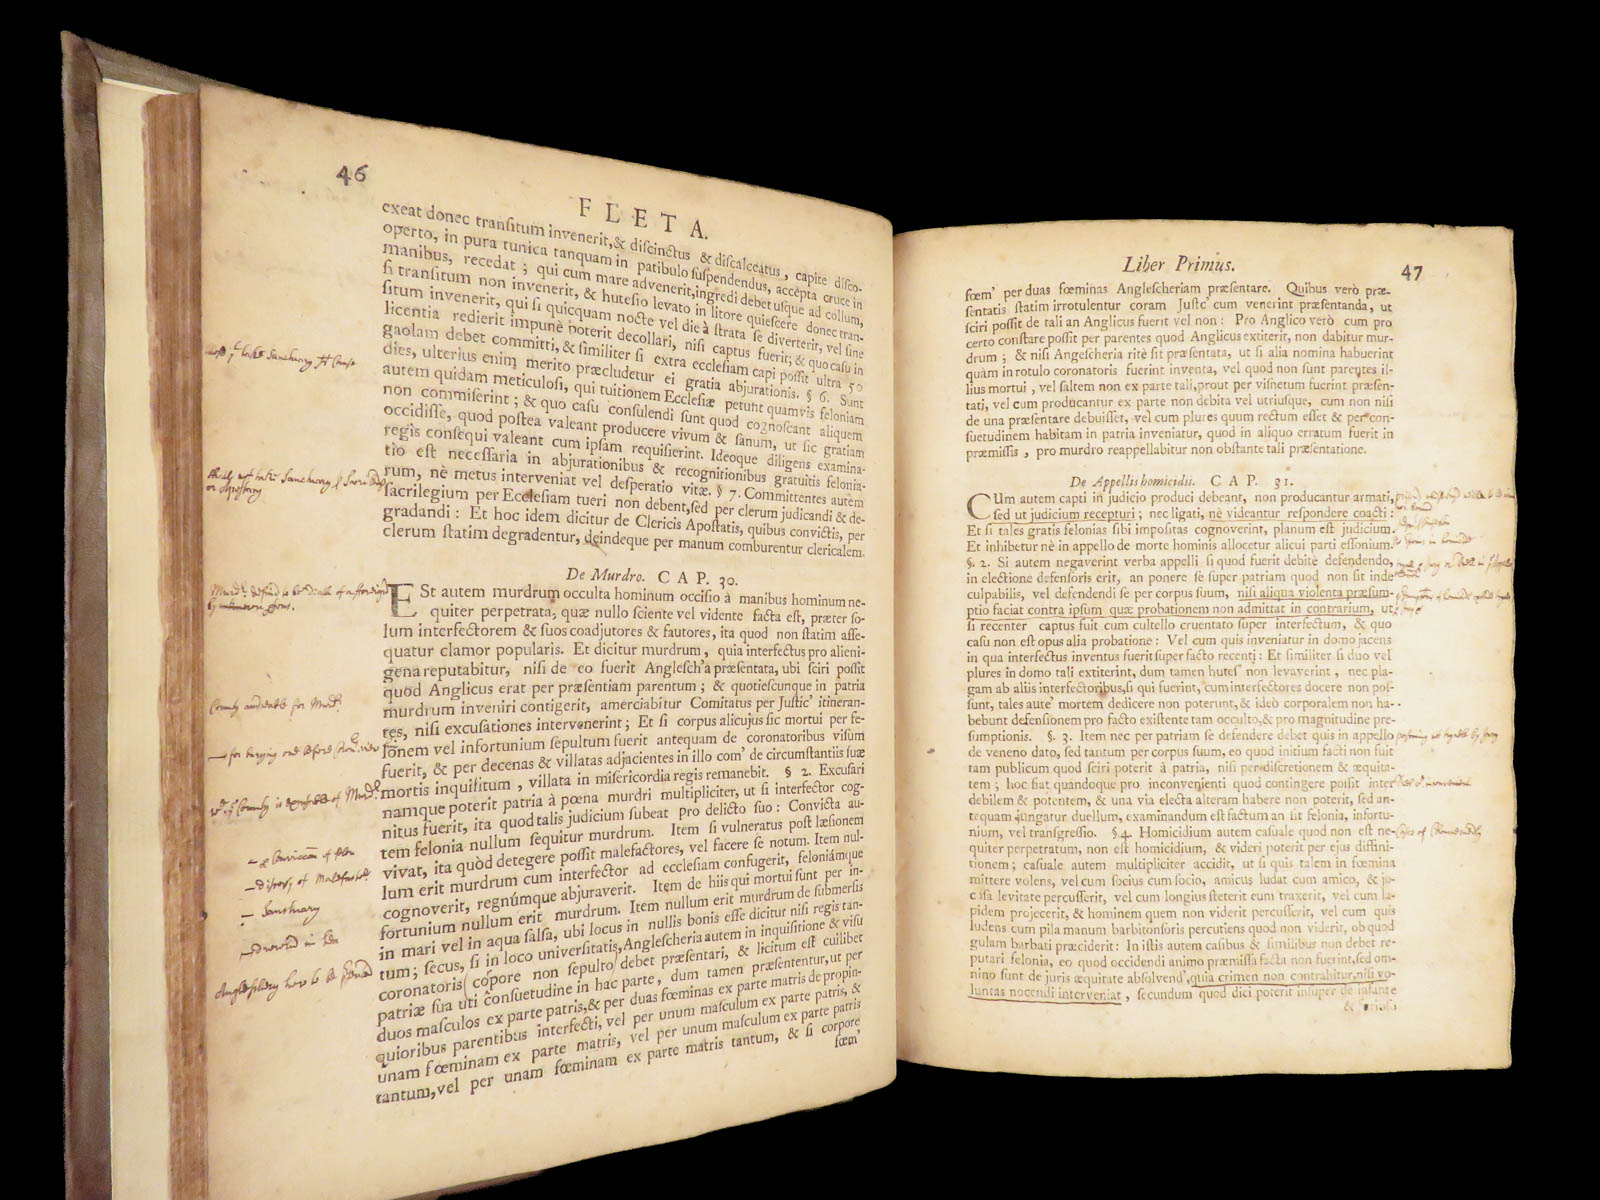 46
FLETA.
exeat donec transitum invenerit, & discinctus & discalceatus, capite disco-
operto, in pura tunica tanquam in patibulo suspendendus, accepta cruce in
manibus, recedat; qui cum mare advenerit, ingredi debet usque ad collum,
si transitum non invenerit, & hutesio levato in litore quiescere donec tran-
situm invenerit, qui si quicquam nocte vel die à strata se diverterit, vel sine
licentia redierit impunè poterit decollari, nisi captus fuerit; & quo casu in
gaolam debet committi, & similiter si extra ecclesiam capi possit ultra 50
dies, ulterius enim merito præcludetur ei gratia abjurationis. § 6. Sunt
autem quidam meticulosi, qui tuitionem Ecclesiæ petunt quamvis feloniam
non commiserint; & quo casu consulendi sunt quod cognoscant aliquem
occidisse, quod postea valeant producere vivum & sanum, ut sic gratiam
regis consequi valeant cum ipsam requisierint. Ideoque diligens examina-
tio est necessaria in abjurationibus & recognitionibus gratuitis felonia-
rum, nè metus interveniat vel desperatio vitæ. § 7. Committentes autem
sacrilegium per Ecclesiam tueri non debent, sed per clerum judicandi & de-
gradandi: Et hoc idem dicitur de Clericis Apostatis, quibus convictis, per
clerum statim degradentur, deindeque per manum comburentur clericalem.
De Murdro. CAP. 30.
ESt autem murdrum occulta hominum occisio à manibus hominum ne-
quiter perpetrata, quæ nullo sciente vel vidente facta est, præter so-
lum interfectorem & suos coadjutores & fautores, ita quod non statim asse-
quatur clamor popularis. Et dicitur murdrum, quia interfectus pro alieni-
gena reputabitur, nisi de eo fuerit Anglesch'a præsentata, ubi sciri possit
quod Anglicus erat per præsentiam parentum; & quotiescunque in patria
murdrum inveniri contigerit, amerciabitur Comitatus per Justic' itineran-
tes, nisi excusationes intervenerint; Et si corpus alicujus sic mortui per fe-
lonem vel infortunium sepultum fuerit antequam de coronatoribus visum
fuerit, & per decenas & villatas adjacientes in illo com' de circumstantiis suæ
mortis inquisitum, villata in misericordia regis remanebit. § 2. Excusari
namque poterit patria à pœna murdri multipliciter, ut si interfector cog-
nitus fuerit, ita quod talis judicium subeat pro delicto suo: Convicta au-
tem felonia nullum sequitur murdrum. Item si vulneratus post læsionem
vivat, ita quòd detegere possit malefactores, vel facere se notum. Item nul-
lum erit murdrum cum interfector ad ecclesiam confugerit, feloniámque
cognoverit, regnúmque abjuraverit. Item de hiis qui mortui sunt per in-
fortunium nullum erit murdrum. Item nullum erit murdrum de submersis
in mari vel in aqua salsa, ubi locus in nullis bonis esse dicitur nisi regis tan-
tum; secus, si in loco universitatis, Anglescheria autem in inquisitione & visu
coronatoris (copore non sepulto) debet præsentari, & licitum est cuilibet
patriæ sua uti consuetudine in hac parte, dum tamen præsententur, ut per
duos masculos ex parte patris, & per duas fœminas ex parte matris de propin-
quioribus parentibus interfecti, vel per unum masculum ex parte patris, &
unam fœminam ex parte matris, vel per unum masculum ex parte patris
tantum, vel per unam fœminam ex parte matris tantum, & si corpore
fœm'
Sanctuary
Liber Primus.
47
fœm' per duas fœminas Anglescheriam præsentare. Quibus verò præ-
sentatis statim irrotulentur coram Justic' cum venerint præsentanda, ut
sciri possit de tali an Anglicus fuerit vel non: Pro Anglico verò cum pro
certo constare possit per parentes quod Anglicus extiterit, non dabitur mur-
drum; & nisi Angescheria ritè sit præsentata, ut si alia nomina habuerint
quàm in rotulo coronatoris fuerint inventa, vel quod non sunt parentes il-
lius mortui, vel saltem non ex parte tali, prout per visnetum fuerint præsen-
tati, vel cum producantur ex parte non debita vel utriusque, cum non nisi
de una præsentare debuisset, vel cum plures quum rectum esset & per con-
suetudinem habitam in patria inveniatur, quod in aliquo erratum fuerit in
præmissis, pro murdro reappellabitur non obstante tali præsentatione.
De Appellis homicidii. CAP. 31.
CUm autem capti in judicio produci debeant, non producantur armati,
sed ut judicium recepturi; nec ligati, nè videantur respondere coacti:
Et si tales gratis felonias sibi impositas cognoverint, planum est judicium.
Et inhibetur nè in appello de morte hominis allocetur alicui parti essonium.
§. 2. Si autem negaverint verba appelli si quod fuerit debitè defendendo,
in electione defensoris erit, an ponere se super patriam quod non sit inde
culpabilis, vel defendendi se per corpus suum, nisi aliqua violenta præsum-
ptio faciat contra ipsum quæ probationem non admittat in contrarium, ut
si recenter captus fuit cum cultello cruentato super interfectum, & quo
casu non est opus alia probatione: Vel cum quis inveniatur in domo jacens
in qua interfectus inventus fuerit super facto recenti: Et similiter si duo vel
plures in domo tali extiterint, dum tamen hutes' non levaverint, nec pla-
gam ab aliis interfectoribus, si qui fuerint, cum interfectores docere non pos-
sunt, tales aute' mortem dedicere non poterunt, & ideò corporalem non ha-
bebunt defensionem pro facto existente tam occulto, & pro magnitudine pre-
sumptionis. §. 3. Item nec per patriam se defendere debet quis in appello
de veneno dato, sed tantum per corpus suum, eo quod initium facti non fuit
tam publicum quod sciri poterit à patria, nisi per discretionem & æquita-
tem; hoc fiat quandoque pro inconvenienti quod contingere possit inter
debilem & potentem, & una via electa alteram habere non poterit, sed an-
tequam jungatur duellum, examinandum est factum an sit felonia, infortu-
nium, vel transgressio. §. 4. Homicidium autem casuale quod non est ne-
quiter perpetratum, non est homicidium, & videri poterit per ejus diffini-
tionem; casuale autem multipliciter accidit, ut si quis talem in fœmina
mittere volens, vel cum socius cum socio, amicus ludat cum amico, & jo-
cosa levitate percusserit, vel cum longius steterit eum traxerit, vel cum la-
pidem projecerit, & hominem quem non viderit percusserit, vel cum quis
ludens cum pila manum barbitonsoris percutiens quod non viderit, ob quod
gulam barbati præciderit: In istis autem casibus & similibus non debet re-
putari felonia, eo quod occidendi animo præmissa facta non fuerint, sed om-
nino sunt de juris æquitate absolvend', quia crimen non contrahitur, nisi vo-
luntas nocendi interveniat, secundum quod dici poterit insuper de infante
& furioso